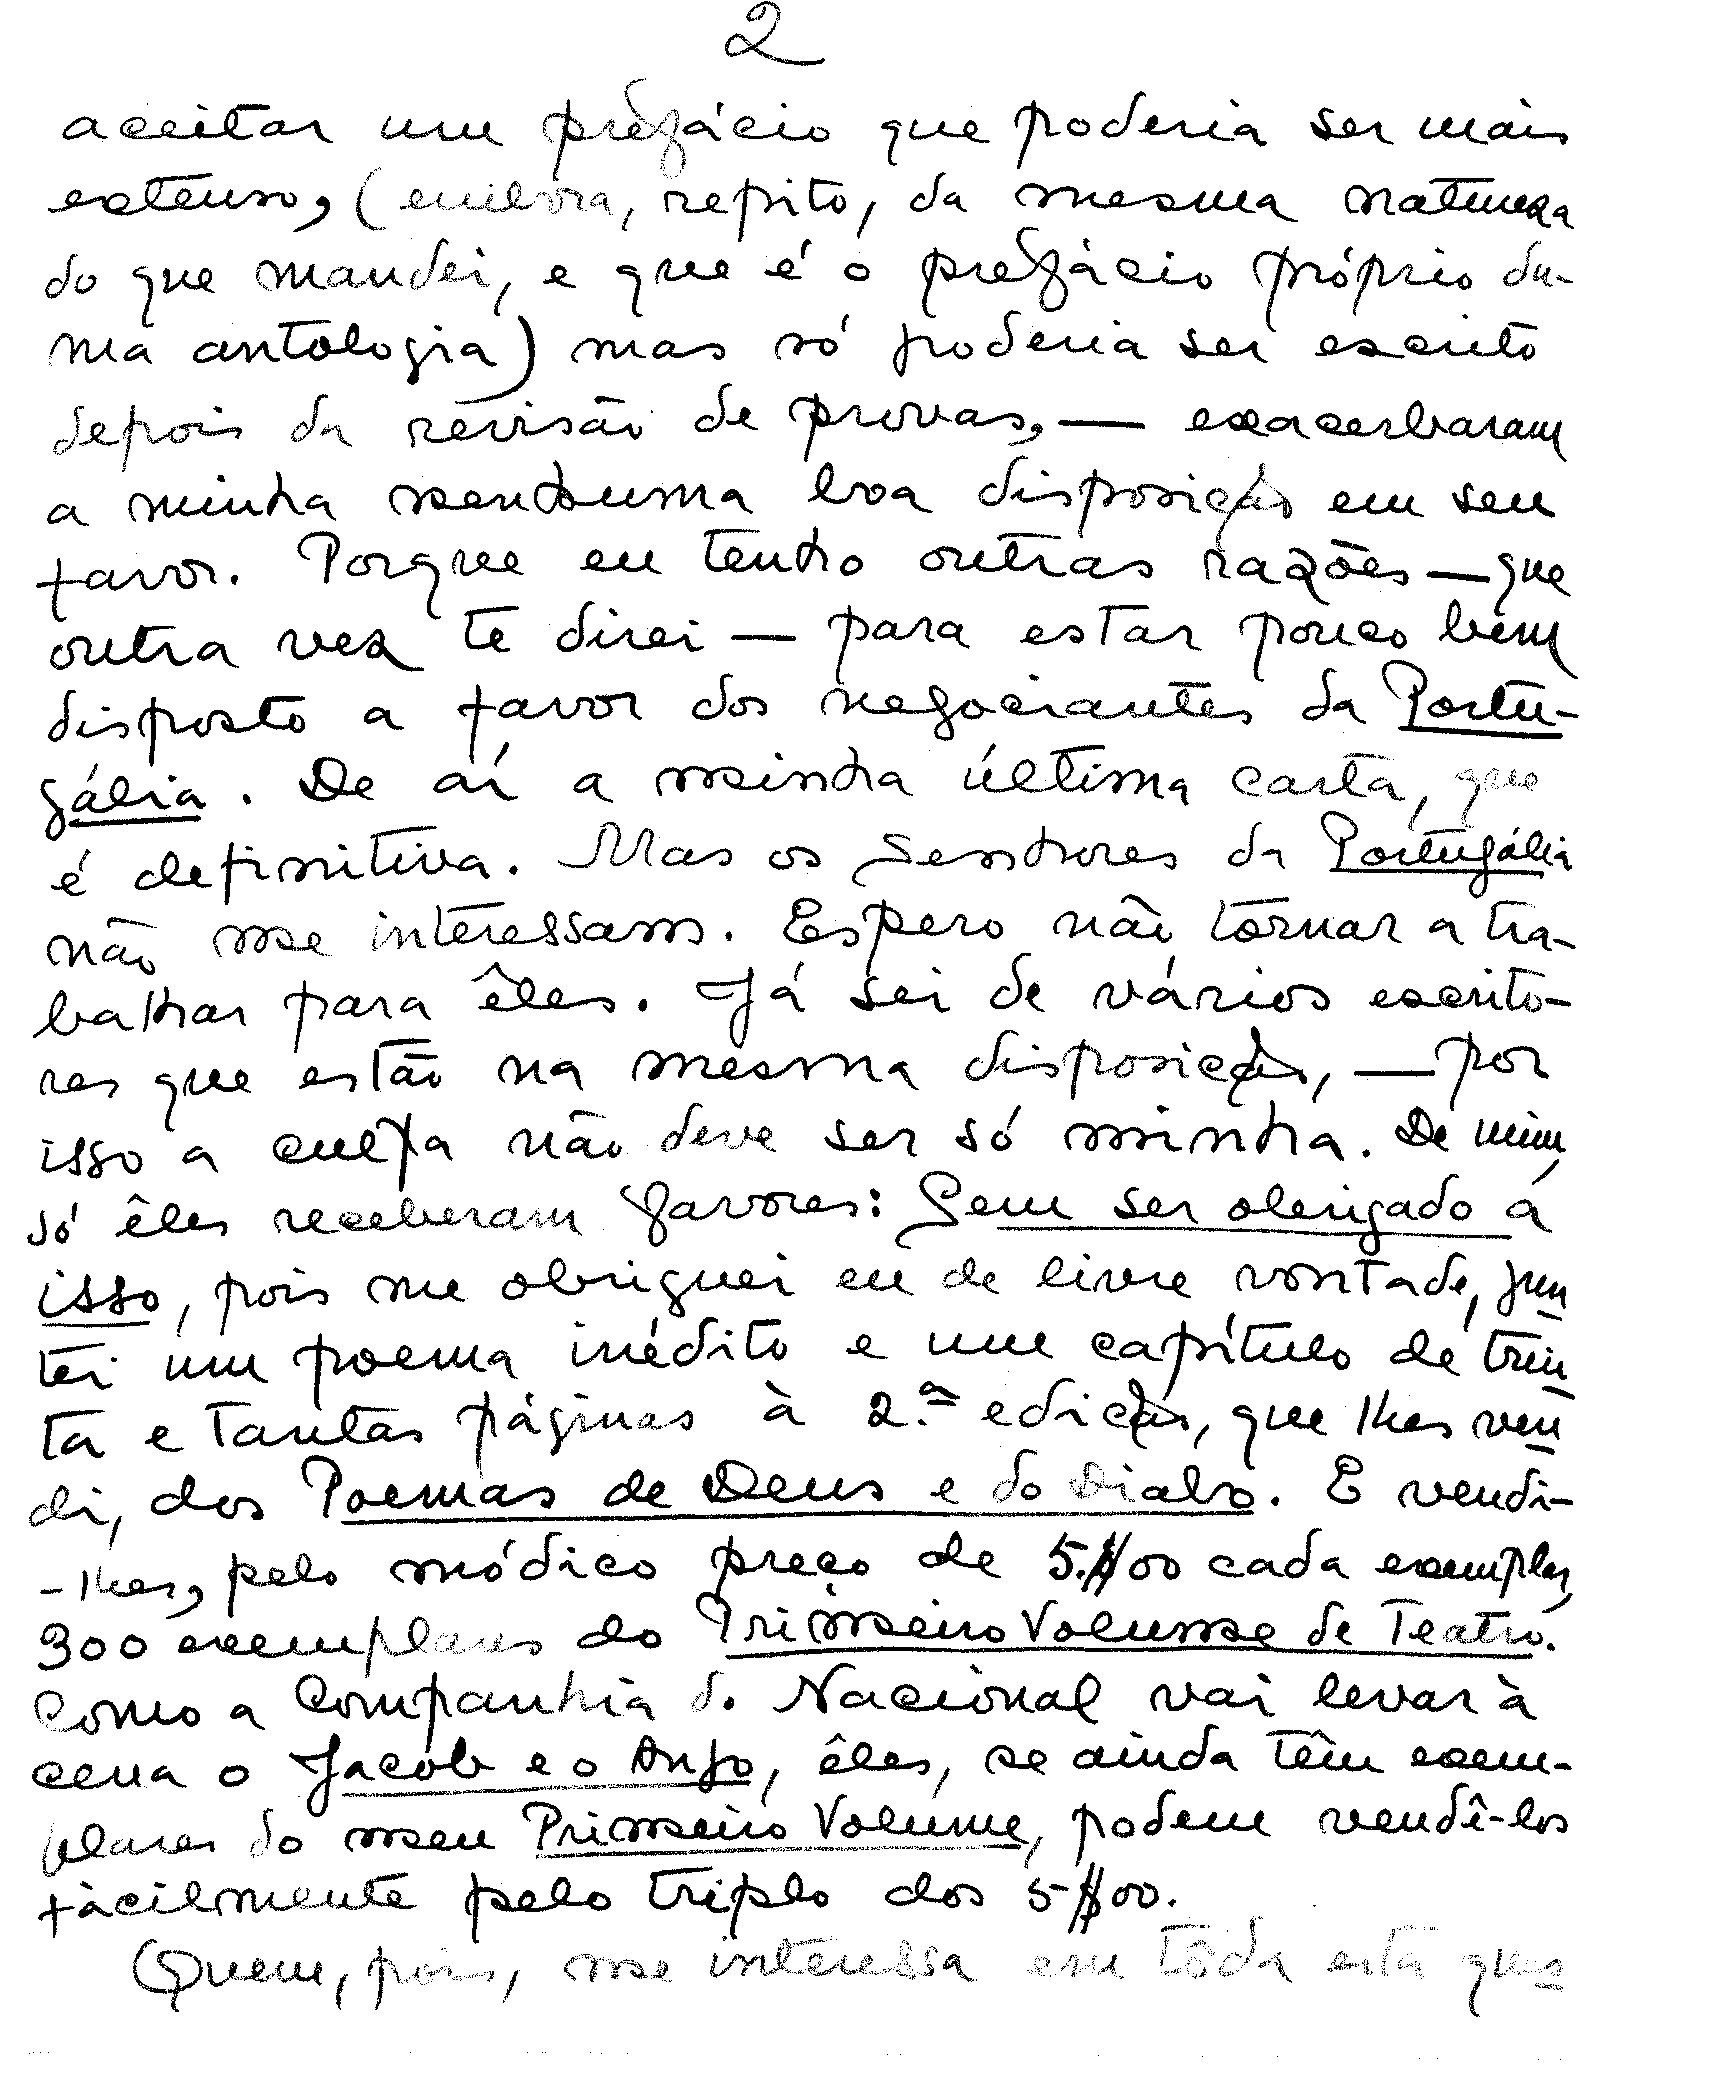 2
aceitar um prefácio que poderia ser mais
extenso, (embora, repito, da mesma natureza
do que mandei, e que é o prefácio próprio du-
ma antologia) mas só poderia ser escrito
depois da revisão de provas, — exacerbaram
a minha nenhuma boa disposição em seu
favor. Porque eu tenho outras razões — que
outra vez te direi — para estar pouco bem
disposto a favor dos negociantes da Portu-
gália. De aí a minha última carta, que
é definitiva. Mas os senhores da Portugália
não me interessam. Espero não tornar a tra-
balhar para êles. Já sei de vários escrito-
res que estão na mesma disposição, — por
isso a culpa não deve ser só minha. De mim,
só êles receberam favores: Sem ser obrigado a
isso, pois me obriguei eu de livre vontade, jun
tei um poema inédito e um capítulo de trin
ta e tantas páginas à 2.ª edição, que lhes ven
di, dos Poemas de Deus e do Diabo. E vendi-
-lhes, pelo módico preço de 5.$00 cada exemplar,
300 exemplares do Primeiro Volume de Teatro.
Como a Companhia do Nacional vai levar à
cena o Jacob e o Anjo, êles, se ainda têm exem-
plares do meu Primeiro Volume, podem vendê-los
fàcilmente pelo triplo dos 5$00.
Quem, pois, me interessa em tôda esta ques